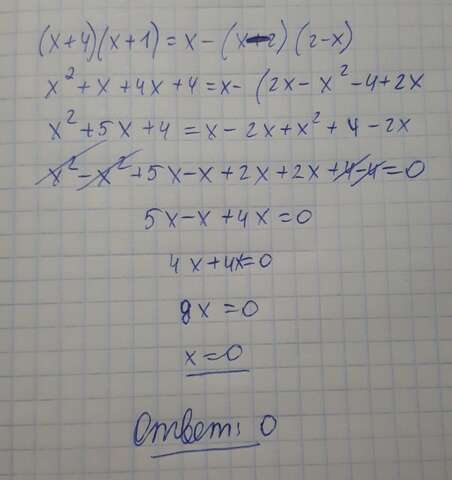 (x+4)(x+1)=x-(x-2)(2-x)
x²+x+4x+4=x-(2x-x²-4+2x
x²+5x+4=x-2x+x²+4-2x
x²-x²+5x-x+2x+2x+4-4=0
5x-x+4x=0
4x+4x=0
8x=0
x=0
Ответ: 0